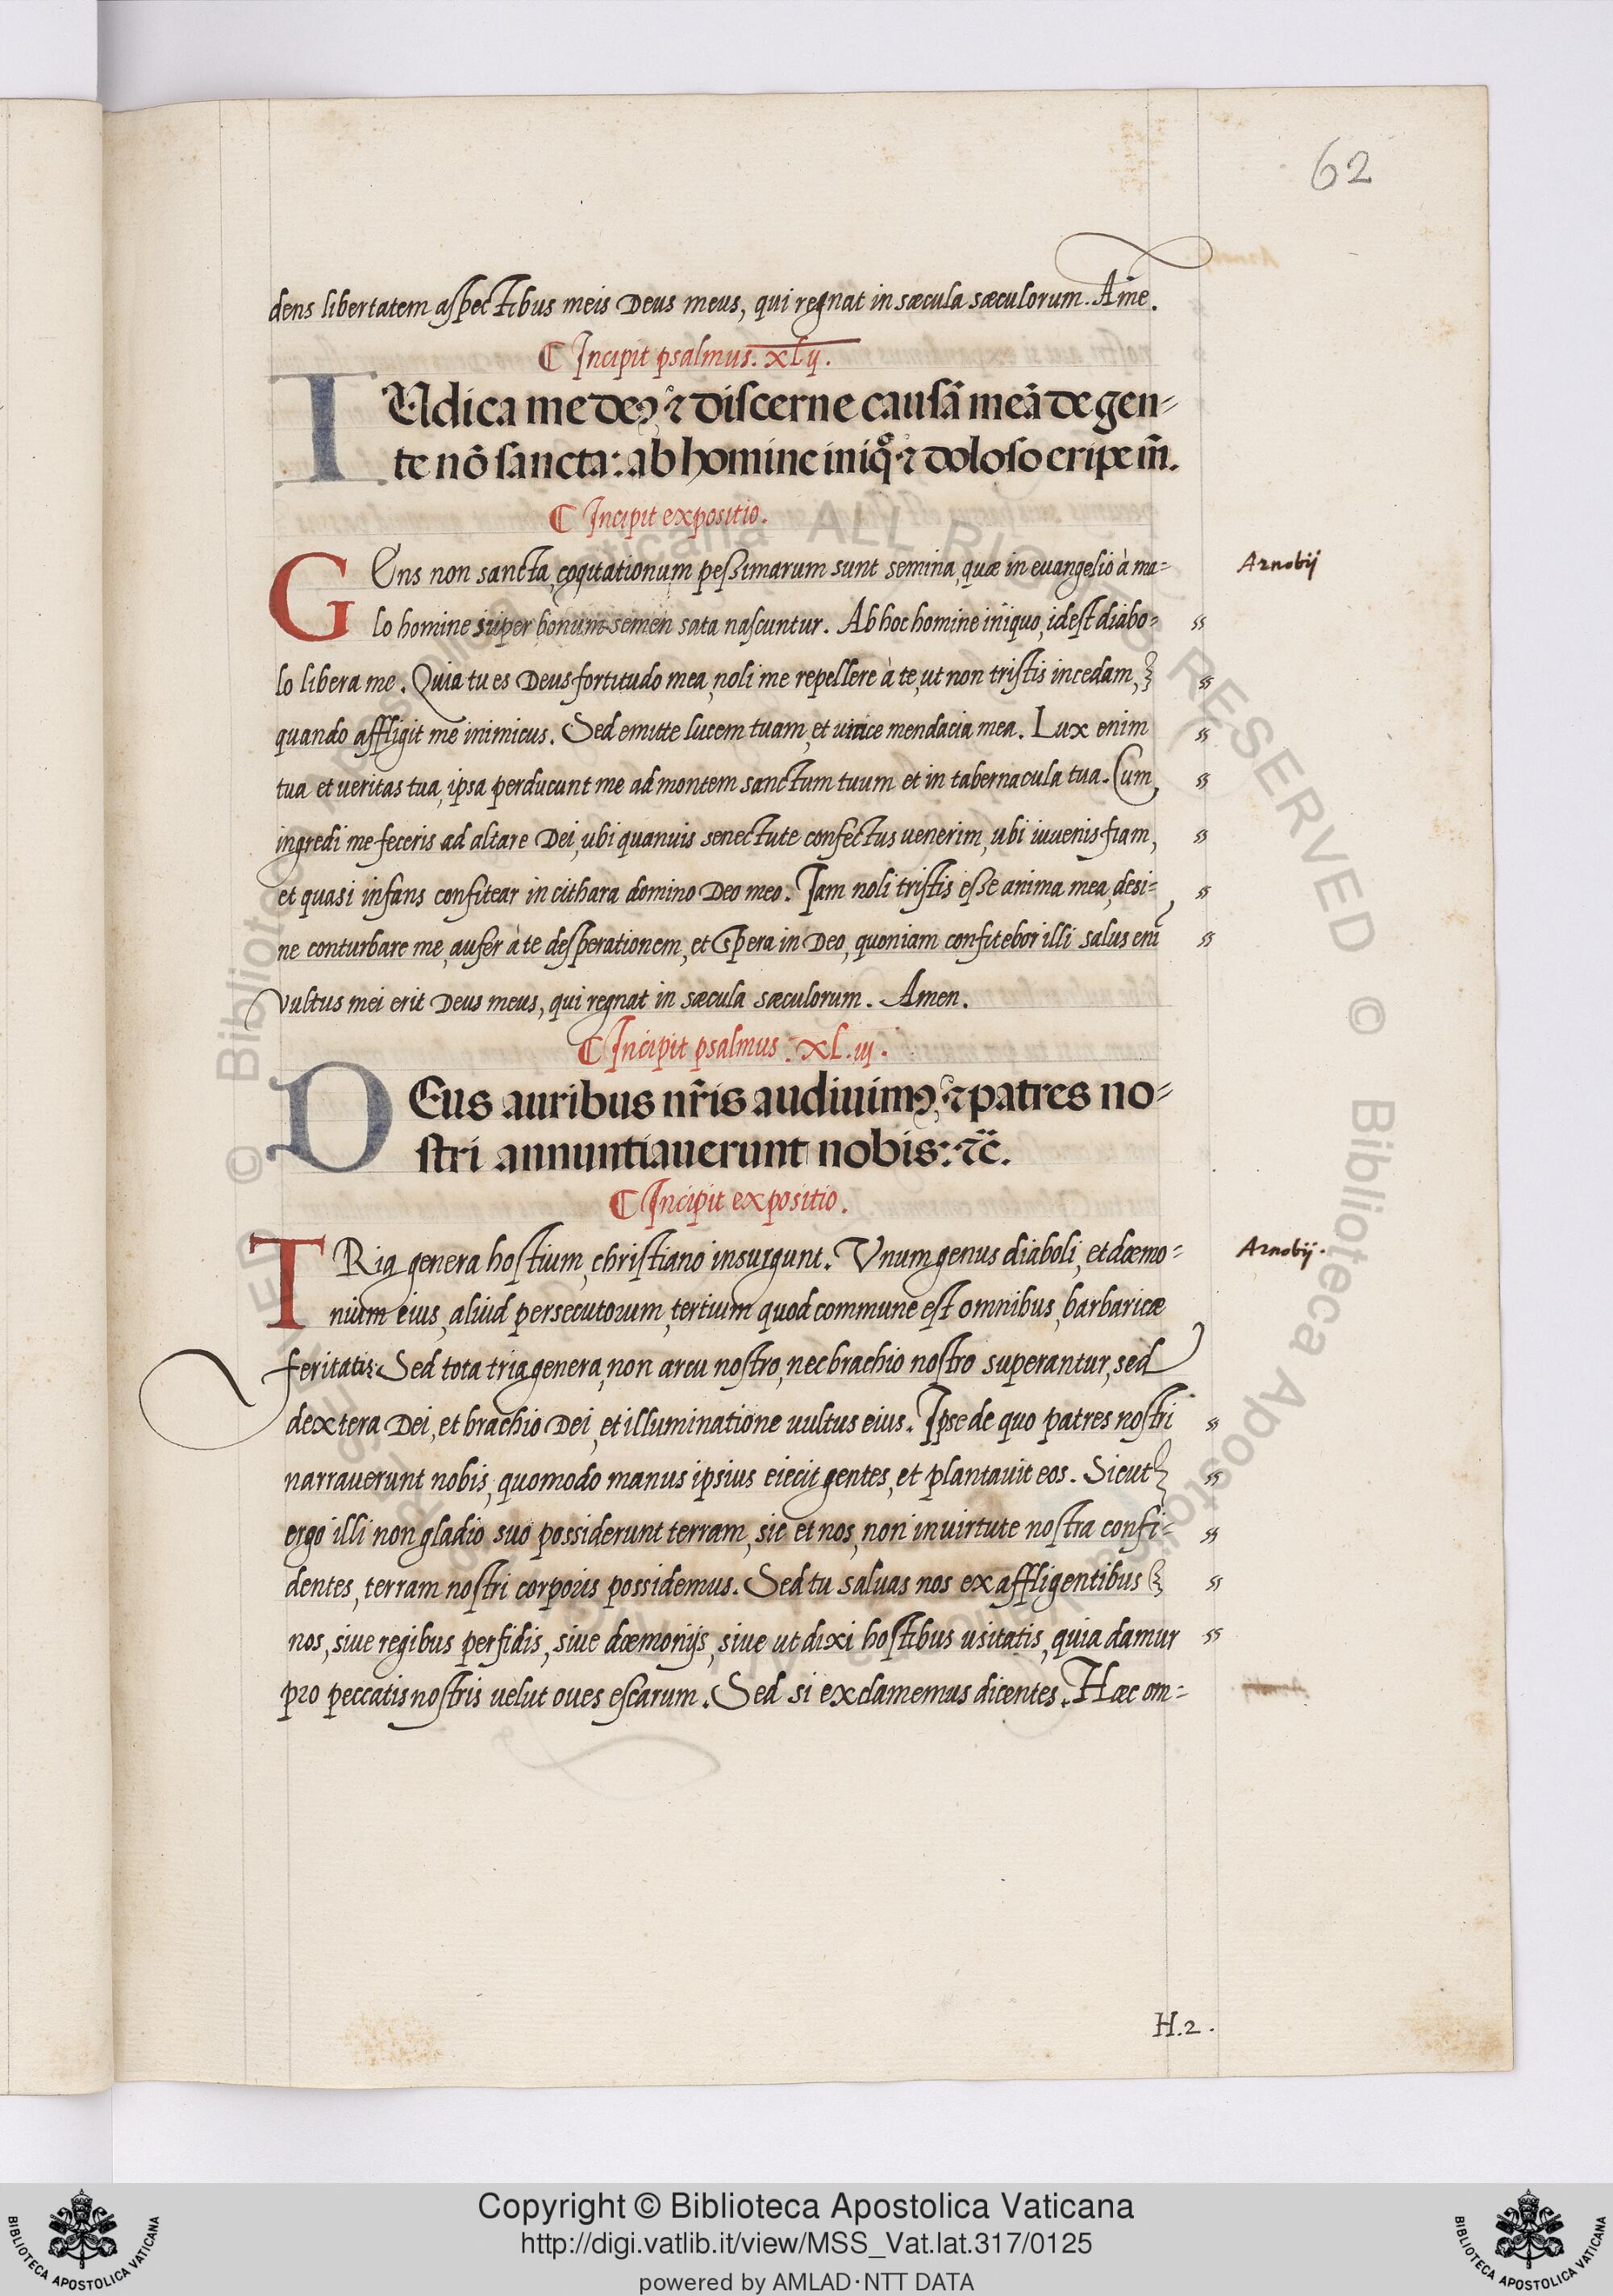 62
dens libertatem aspectibus meis Deus meus, qui regnat in sæcula sæculorum. Amē.
¶ Incipit psalmus. xlij.
IUdica me deꝰ ⁊ discerne causā meā de gen⸗
te nō sancta: ab homine iniqͦ ⁊ doloso eripe m̄.
¶ Incipit expositio.
GEns non sancta, cogitationum pessimarum sunt semina, quæ in euangelio à ma⸗
Arnobij
lo homine super bonum semen sata nascuntur. Ab hoc homine iniquo, idest diabo⸗ ss
lo libera me. Quia tu es Deus fortitudo mea, noli me repellere à te, ut non tristis incedam, ss
quando affligit me inimicus. Sed emitte lucem tuam, et vince mendacia mea. Lux enim ss
tua et ueritas tua, ipsa perducunt me ad montem sanctum tuum et in tabernacula tua. Cum ss
ingredi me feceris ad altare Dei, ubi quanuis senectute confectus uenerim, ubi iuuenis fiam, ss
et quasi infans confitear in cithara domino Deo meo. Iam noli tristis esse anima mea, desi⸗ ss
ne conturbare me, aufer à te desperationem, et spera in Deo, quoniam confitebor illi salus eni ss
vultus mei erit Deus meus, qui regnat in sæcula sæculorum. Amen.
¶ Incipit psalmus. XL.iij.
DEus auribus nr̄is audiuimꝰ, ⁊ patres no⸗
stri annuntiauerunt nobis: ⁊c̄.
¶ Incipit expositio.
TRia genera hostium, christiano insurgunt. Vnum genus diaboli, et dæmo⸗
Arnobij.
nium eius, aliud persecutorum, tertium quod commune est omnibus, barbaricæ
feritatis. Sed tota tria genera, non arcu nostro, nec brachio nostro superantur, sed
dextera Dei, et brachio Dei, et illuminatione uultus eius. Ipse de quo patres nostri ss
narrauerunt nobis, quomodo manus ipsius eiecit gentes, et plantauit eos. Sicut ss
ergo illi non gladio suo possiderunt terram, sic et nos, non in uirtute nostra confi⸗ ss
dentes, terram nostri corporis possidemus. Sed tu saluas nos ex affligentibus ss
nos, siue regibus perfidis, siue dæmonijs, siue ut dixi hostibus usitatis, quia damur ss
pro peccatis nostris uelut oues escarum. Sed si exclamemus dicentes. Hæc om⸗
H.2.
© Biblioteca Apostolica Vaticana ALL RIGHTS RESERVED
Copyright © Biblioteca Apostolica Vaticana
http://digi.vatlib.it/view/MSS_Vat.lat.317/0125
powered by AMLAD·NTT DATA
BIBLIOTECA APOSTOLICA VATICANA
BIBLIOTECA APOSTOLICA VATICANA